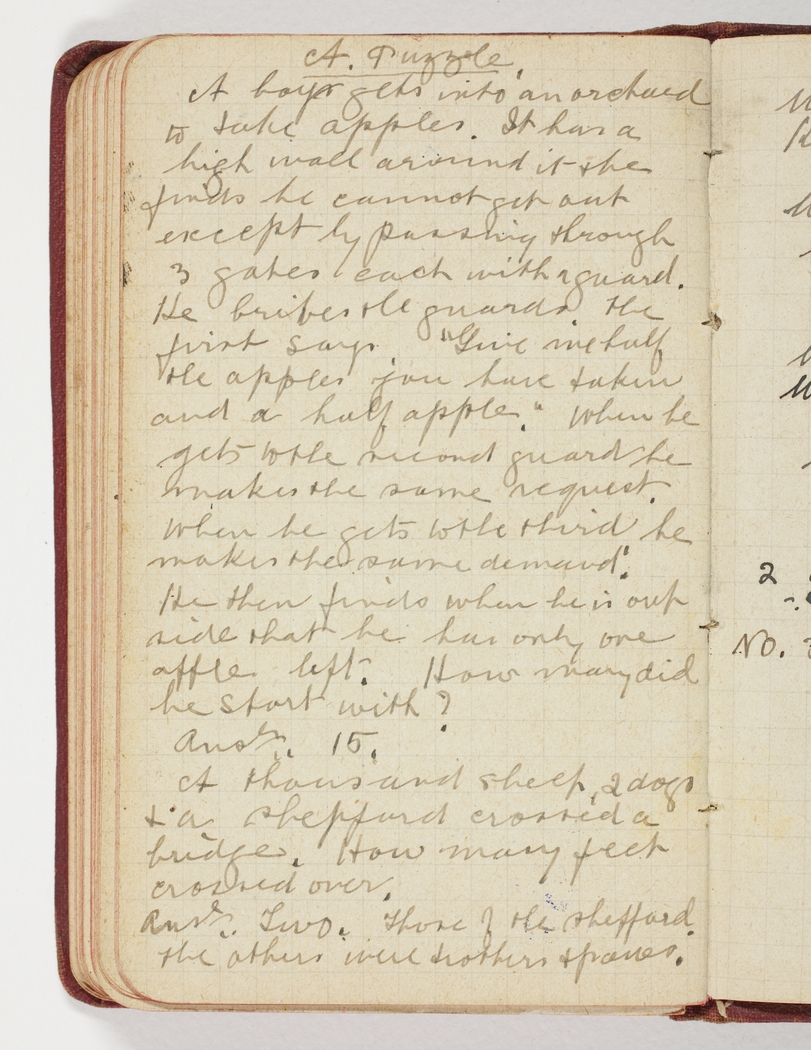 A. Puzzle.
A boy gets into an orchard
to take apples. It has a
high wall around it & he
finds he cannot get out
except by passing through
3 gates each with a guard.
He bribes the guards the
first says "Give me half
the apples you have taken
and a half apple." When he
gets to the second guard he
makes the same request.
When he gets to the third he
makes the same demand.
He then finds when he is out
side that he has only one
apple left. How many did
he start with?
Answ. 15.
A thousand sheep, 2 dogs
& a shepperd crossed a
bridge. How many feet
crossed over.
Answ. Two. Those of the shepperd.
the others were trotters & paws.
2
NO.